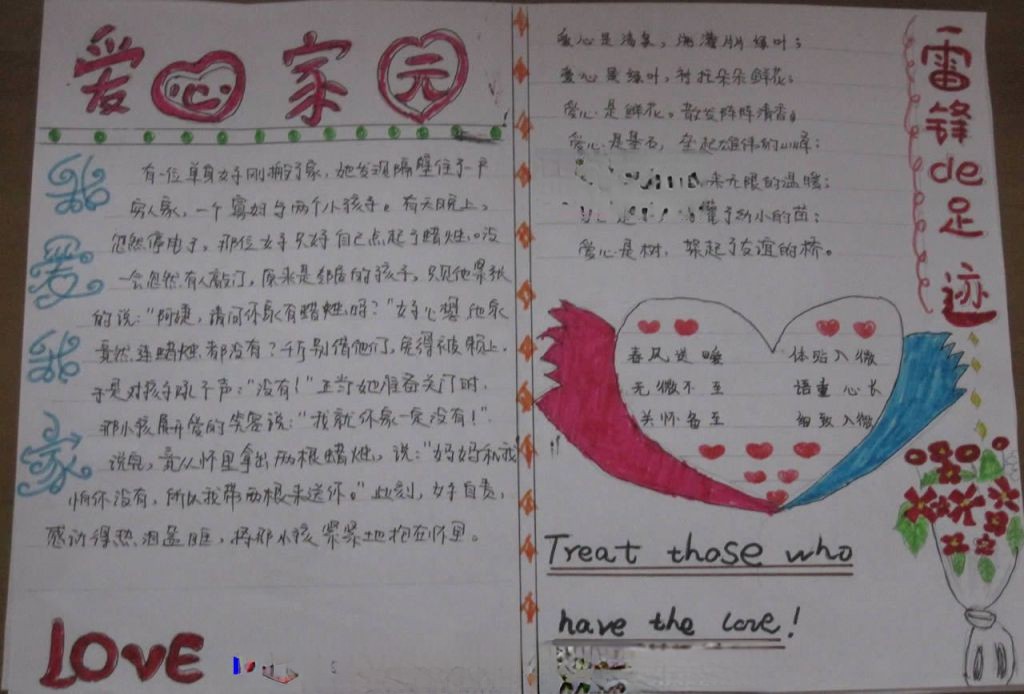 爱心家元
我爱我家
有一位单身女子刚搬了家，她发现隔壁住了一户
穷人家，一个寡妇与两个小孩子。有天晚上，
忽然停电了，那位女子只好自己点起了蜡烛。没
一会忽然有人敲门，原来是邻居的孩子，只见他紧张
的说：“阿婕，请问你家有蜡烛吗？”女子心想他家
竟然连蜡烛都没有？千万别借他们，免得被赖上。
于是对孩子吼了声：“没有！”正当她准备关门时，
那小孩展开爱的笑容说：“我就你家一定没有！”
说完，竟从怀里拿出两根蜡烛，说：“妈妈和我
怕你没有，所以我带两根来送你。”此刻，女子自责，
感动得热泪盈眶，将那小孩紧紧地抱在怀里。
LOVE
爱心是清泉，浇灌片片绿叶；
爱心是绿叶，衬托朵朵鲜花；
爱心是鲜花。散发阵阵清香。
爱心是基石，垒起雄伟的山峰；
来无限的温暖；
幼小的苗；
爱心是树，架起了友谊的桥。
雷锋de足迹
春风送暖 体贴入微
无微不至 语重心长
关怀备至 细致入微
Treat those who
have the love!